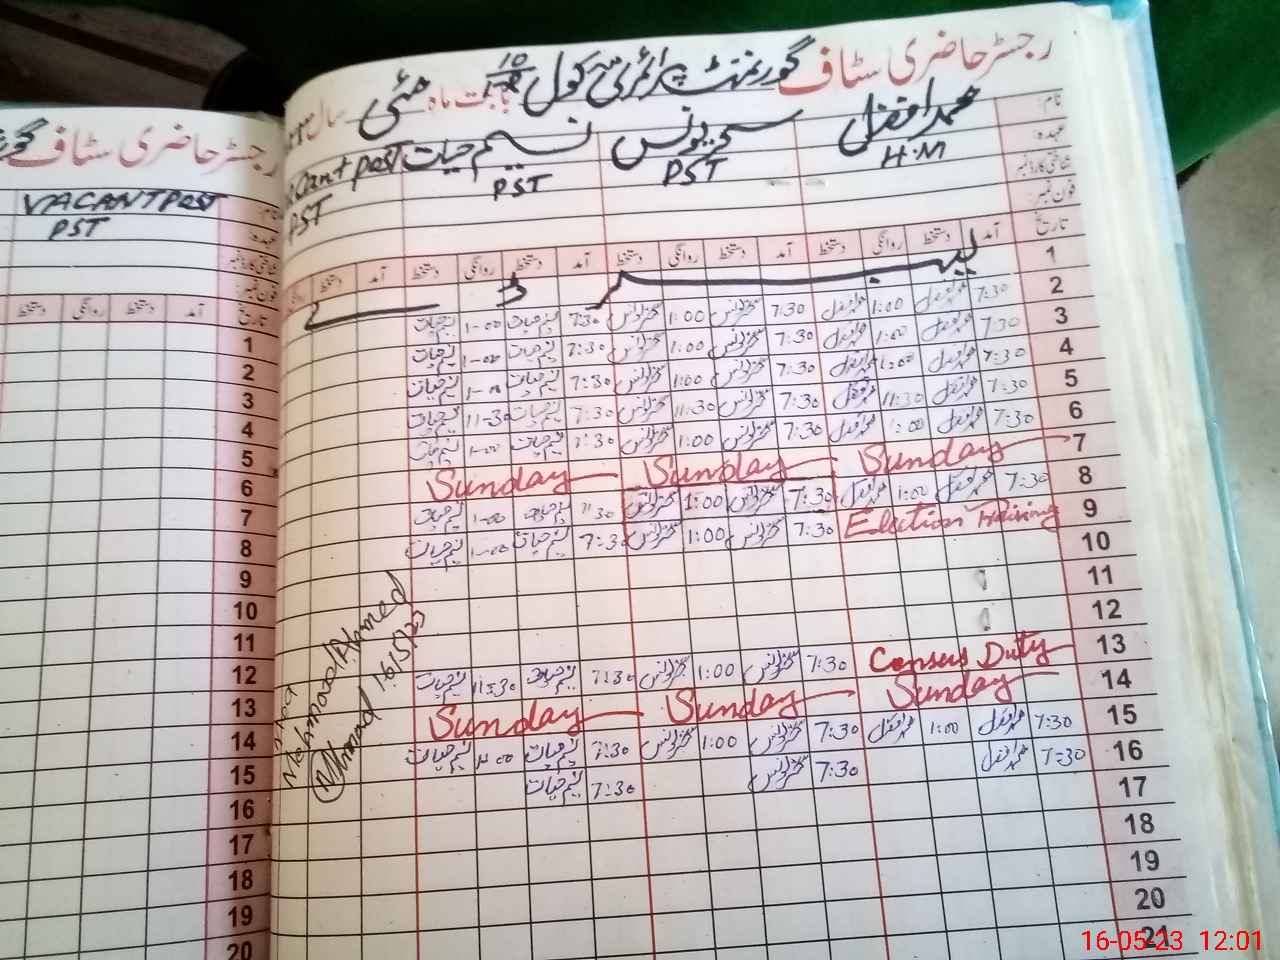 رجسٹر حاضری سٹاف گورنمنٹ پرائمری سکول 10 بابت ماہ مئی سال
نام: محمد افضل
عہدہ: H.M
PST
نسیم حیات
PST
Vacant post
PST
شناختی کارڈ نمبر:
فون نمبر:
تاریخ آمد دستخط روانگی دستخط آمد دستخط روانگی دستخط آمد دستخط روانگی دستخط آمد دستخط روانگی
1
2 7:30 محمد افضل 1:00 محمد افضل 7:30 1:00 7:30 نسیم حیات 1-00 نسیم حیات
3 7:30 محمد افضل 1:00 محمد افضل 7:30 1:00 7:30 نسیم حیات 1-00 نسیم حیات
4 7:30 محمد افضل 1:00 محمد افضل 7:30 1:00 7:30 نسیم حیات 1-00 نسیم حیات
5 7:30 محمد افضل 11:30 محمد افضل 7:30 11:30 7:30 نسیم حیات 11-30 نسیم حیات
6 7:30 محمد افضل 1:00 محمد افضل 7:30 1:00 7:30 نسیم حیات 1-00 نسیم حیات
7 Sunday Sunday Sunday
8 7:30 محمد افضل 1:00 محمد افضل 7:30 1:00 7:30 نسیم حیات 1-00 نسیم حیات
9 Election 7:30 1:00 7:30 نسیم حیات 1-00 نسیم حیات
10
11
12
13 Census Duty 7:30 1:00 7:30 نسیم حیات 11-30 نسیم حیات
14 Sunday Sunday Sunday
15 7:30 محمد افضل 1:00 محمد افضل 7:30 1:00 7:30 نسیم حیات 1-00 نسیم حیات
16 7-30 محمد افضل 7:30 7:30 نسیم حیات
17
18
19
20
21
Mahmood Ahmed
Ahmad 16/5/23
رجسٹر حاضری سٹاف
نام:
VACANT Post
عہدہ:
PST
شناختی کارڈ نمبر:
فون نمبر:
تاریخ آمد دستخط روانگی دستخط
1
2
3
4
5
6
7
8
9
10
11
12
13
14
15
16
17
18
19
20
16-05-23 12:01